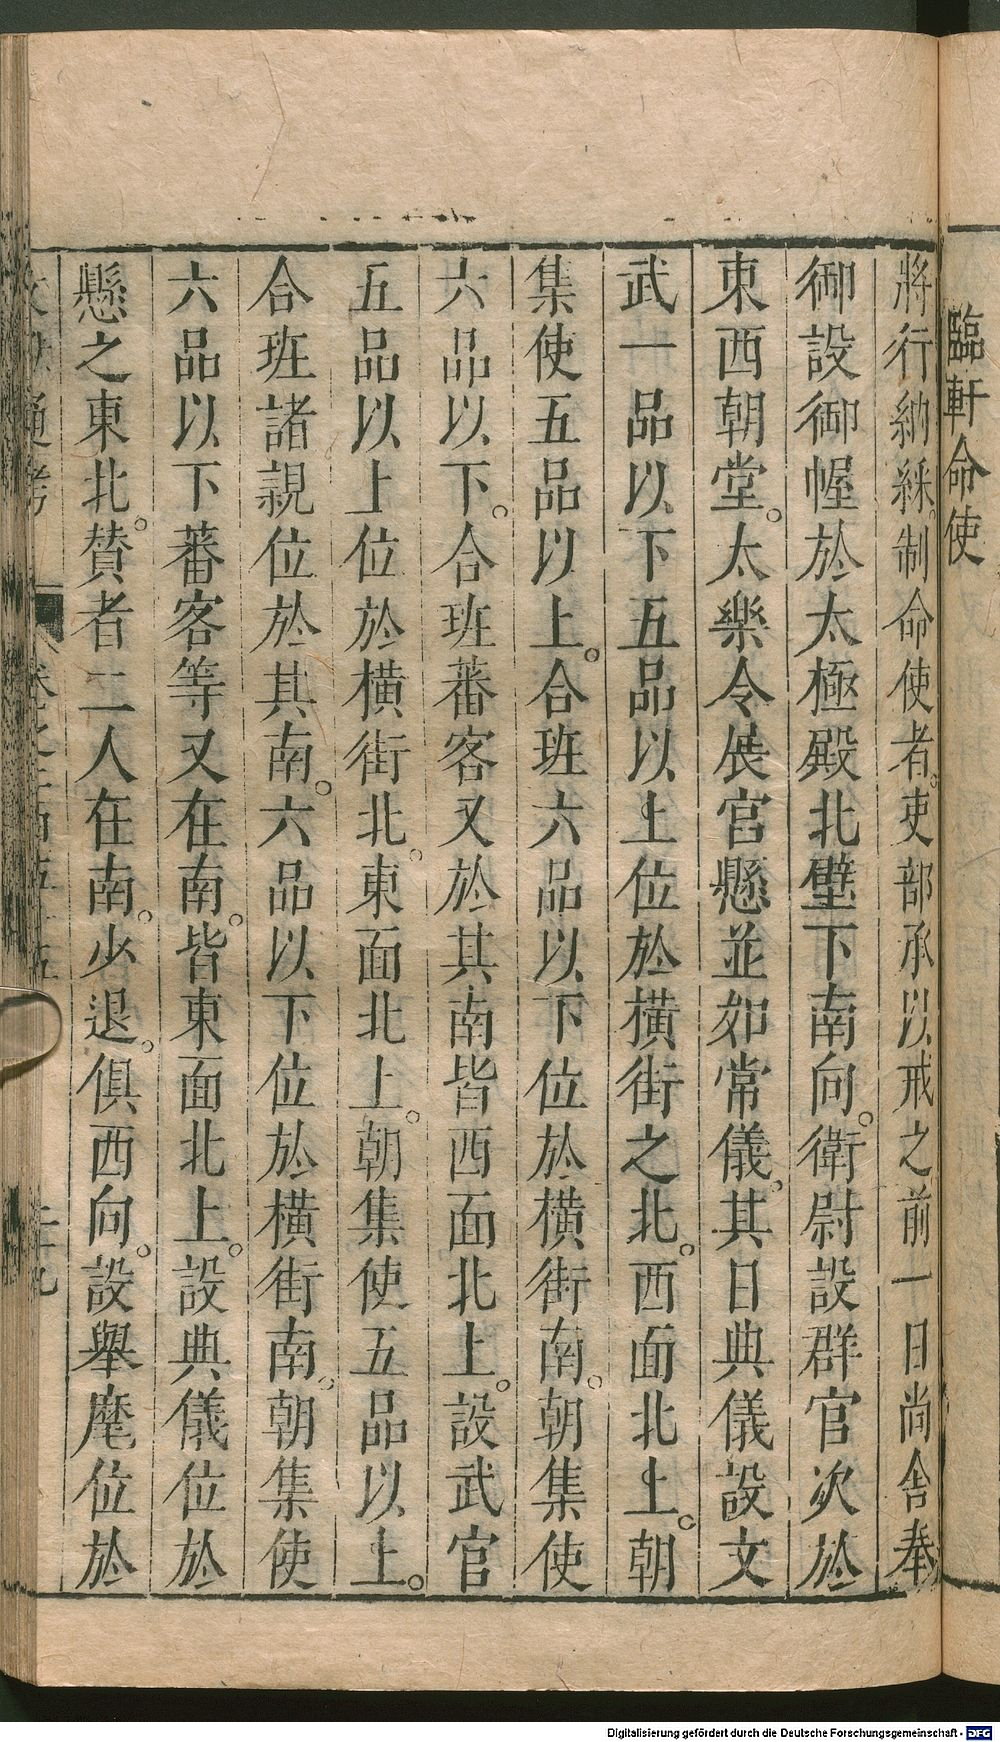 臨軒命使
將行納綵制命使者吏部承以戒之前一日尚舍奉
御設御幄於太極殿北壁下南向衛尉設群官次於
東西朝堂太樂令展宮懸並如常儀其日典儀設文
武一品以下五品以上位於橫街之北西面北上朝
集使五品以上合班六品以下位於橫街南朝集使
六品以下合班蕃客又於其南皆西面北上設武官
五品以上位於橫街北東面北上朝集使五品以上
合班諸親位於其南六品以下位於橫街南朝集使
六品以下蕃客等又在南皆東面北上設典儀位於
懸之東北贊者二人在南少退俱西向設舉麾位於
通考
Digitalisierung gefördert durch die Deutsche Forschungsgemeinschaft - DFG